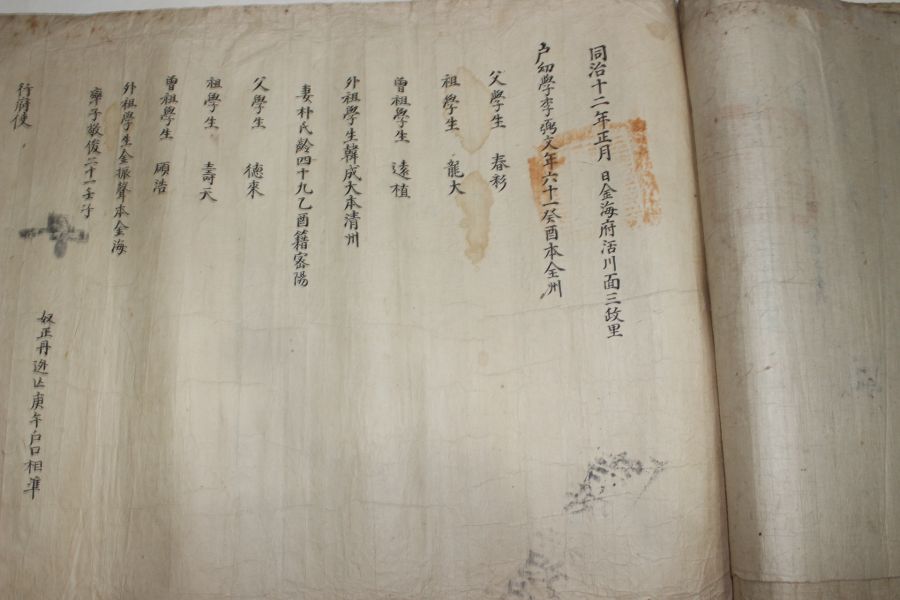 同治十二年正月 日金海府活川面三政里
戶幼學李弼文年六十一癸酉本全州
父學生 春彩
祖學生 龍大
曾祖學生 遠植
外祖學生韓成大本清州
妻朴氏齡四十九乙酉籍密陽
父學生 德來
祖學生 壽天
曾祖學生 碩浩
外祖學生金振聲本金海
率子敬俊二十一壬子
奴正丹 庚午戶口相準
行府使